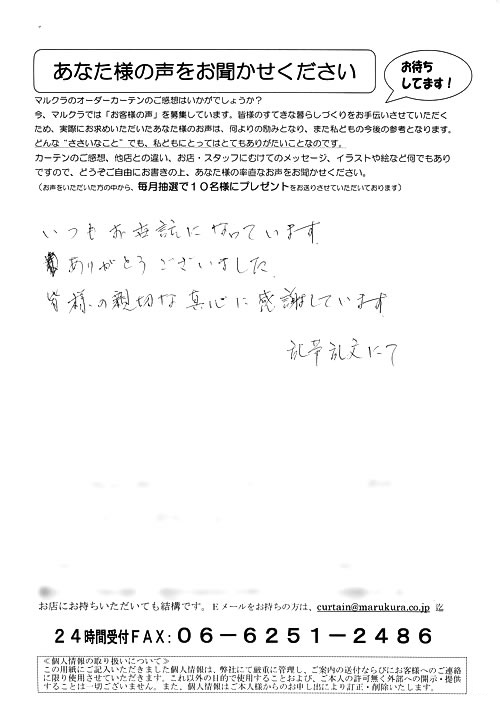 あなた様の声をお聞かせください
お待ち
してます！
マルクラのオーダーカーテンのご感想はいかがでしょうか？
今、マルクラでは「お客様の声」を募集しています。皆様のすてきな暮らしづくりをお手伝いさせていただく
ため、実際にお求めいただいたあなた様のお声は、何よりの励みとなり、また私どもの今後の参考となります。
どんな“ささいなこと”でも、私どもにとってはとてもありがたいことなのです。
カーテンのご感想、他店との違い、お店・スタッフにむけてのメッセージ、イラストや絵など何でもあり
ですので、どうぞご自由にお書きの上、あなた様の率直なお声をお聞かせください。
（お声をいただいた方の中から、毎月抽選で１０名様にプレゼントをお送りさせていただいております）
いつもお世話になっています
ありがとうございました
皆様の親切な真心に感謝しています
乱筆乱文にて
お店にお持ちいただいても結構です。Ｅメールをお持ちの方は、curtain@marukura.co.jp 迄
２４時間受付FAX：０６－６２５１－２４８６
≪個人情報の取り扱いについて≫
この用紙にご記入いただきました個人情報は、弊社にて厳重に管理し、ご案内の送付ならびにお客様へのご連絡
に限り使用させていただきます。これ以外の目的で使用することおよび、ご本人の許可無く外部への開示・提供
することは一切ございません。また、個人情報はご本人様からのお申し出により訂正・削除いたします。